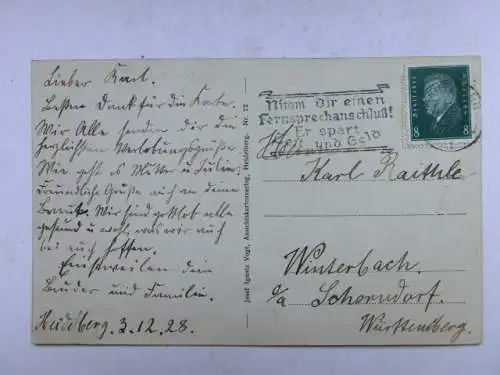 Lieber Karl.
Besten Dank für die Karte.
Wir Alle senden dir die
herzlichsten Verlobungsgrüße
Wie geht es Mutter u
Freundliche Grüße auch an deine
Braut. Wir sind gottlob alle
gesund u. wohl, was wir auch
bei euch hoffen.
Einstweilen dein
Bruder und Familie.
Heidelberg. 3.12.28.
Josef Ignatz Vogt, Ansichtskartenverlag, Heidelberg. Nr. 72
Nimm Dir einen
Fernsprechanschluß!
Er spart
Zeit und Geld
DEUTSCHES REICH
8 8
Karl Raithle
Winterbach.
c/a Schorndorf.
Württemberg.